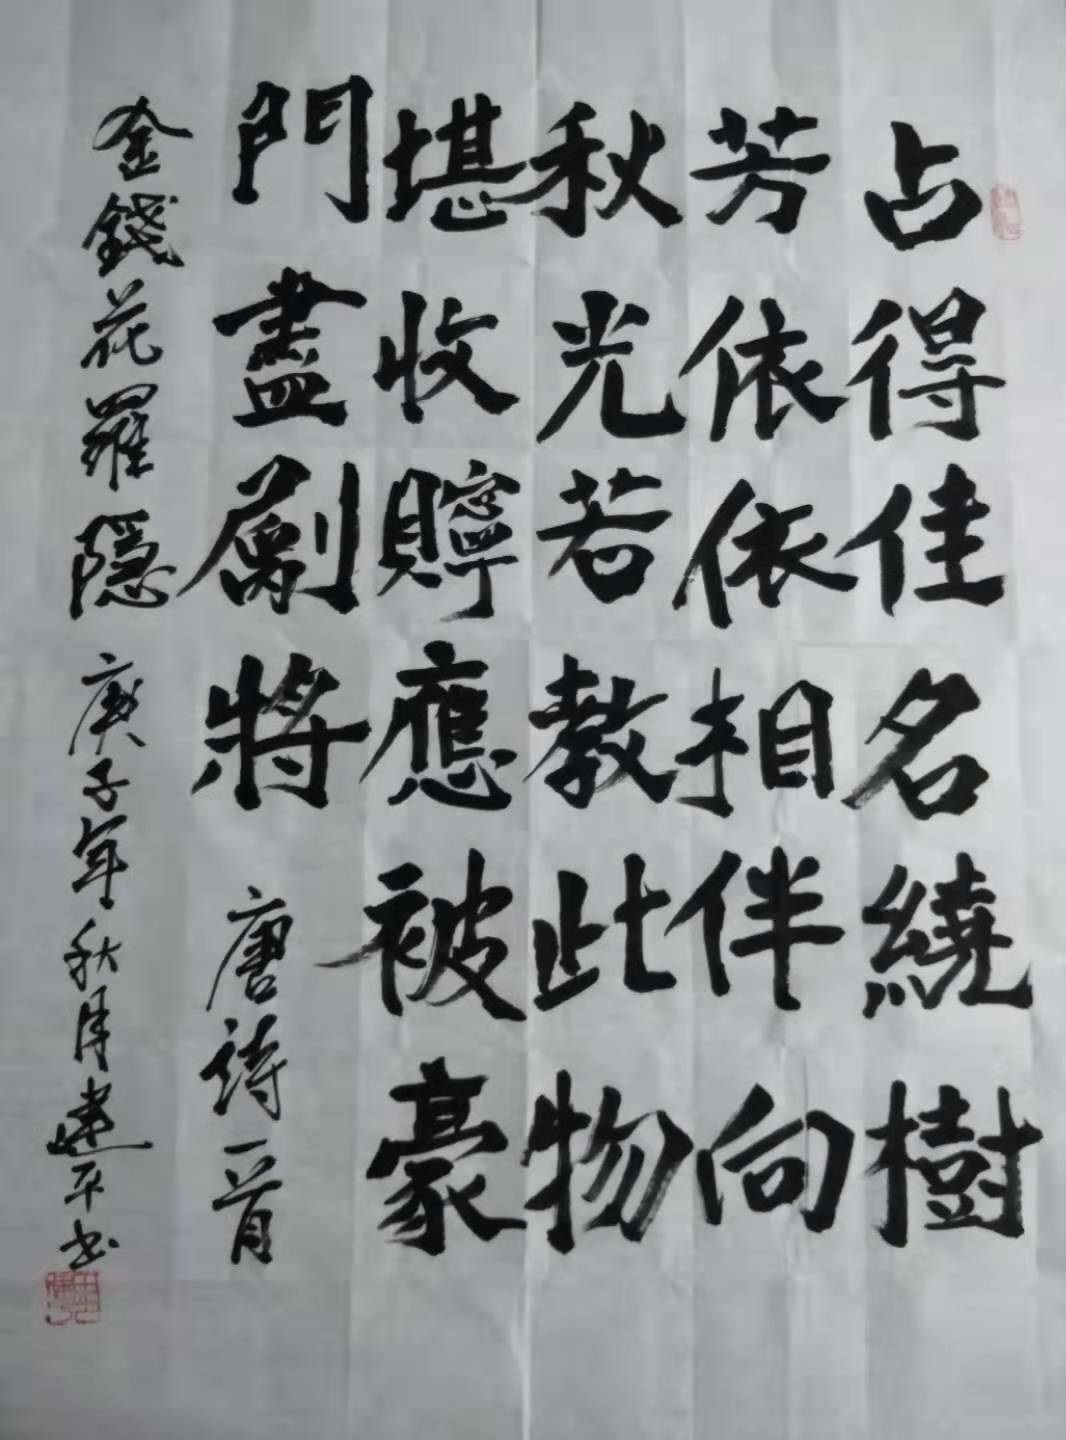 占得佳名繞樹
芳依依相伴向
秋光若教此物
堪收貯應被豪
門盡劚將
唐詩一首
金錢花羅隱
庚子年秋月建平书